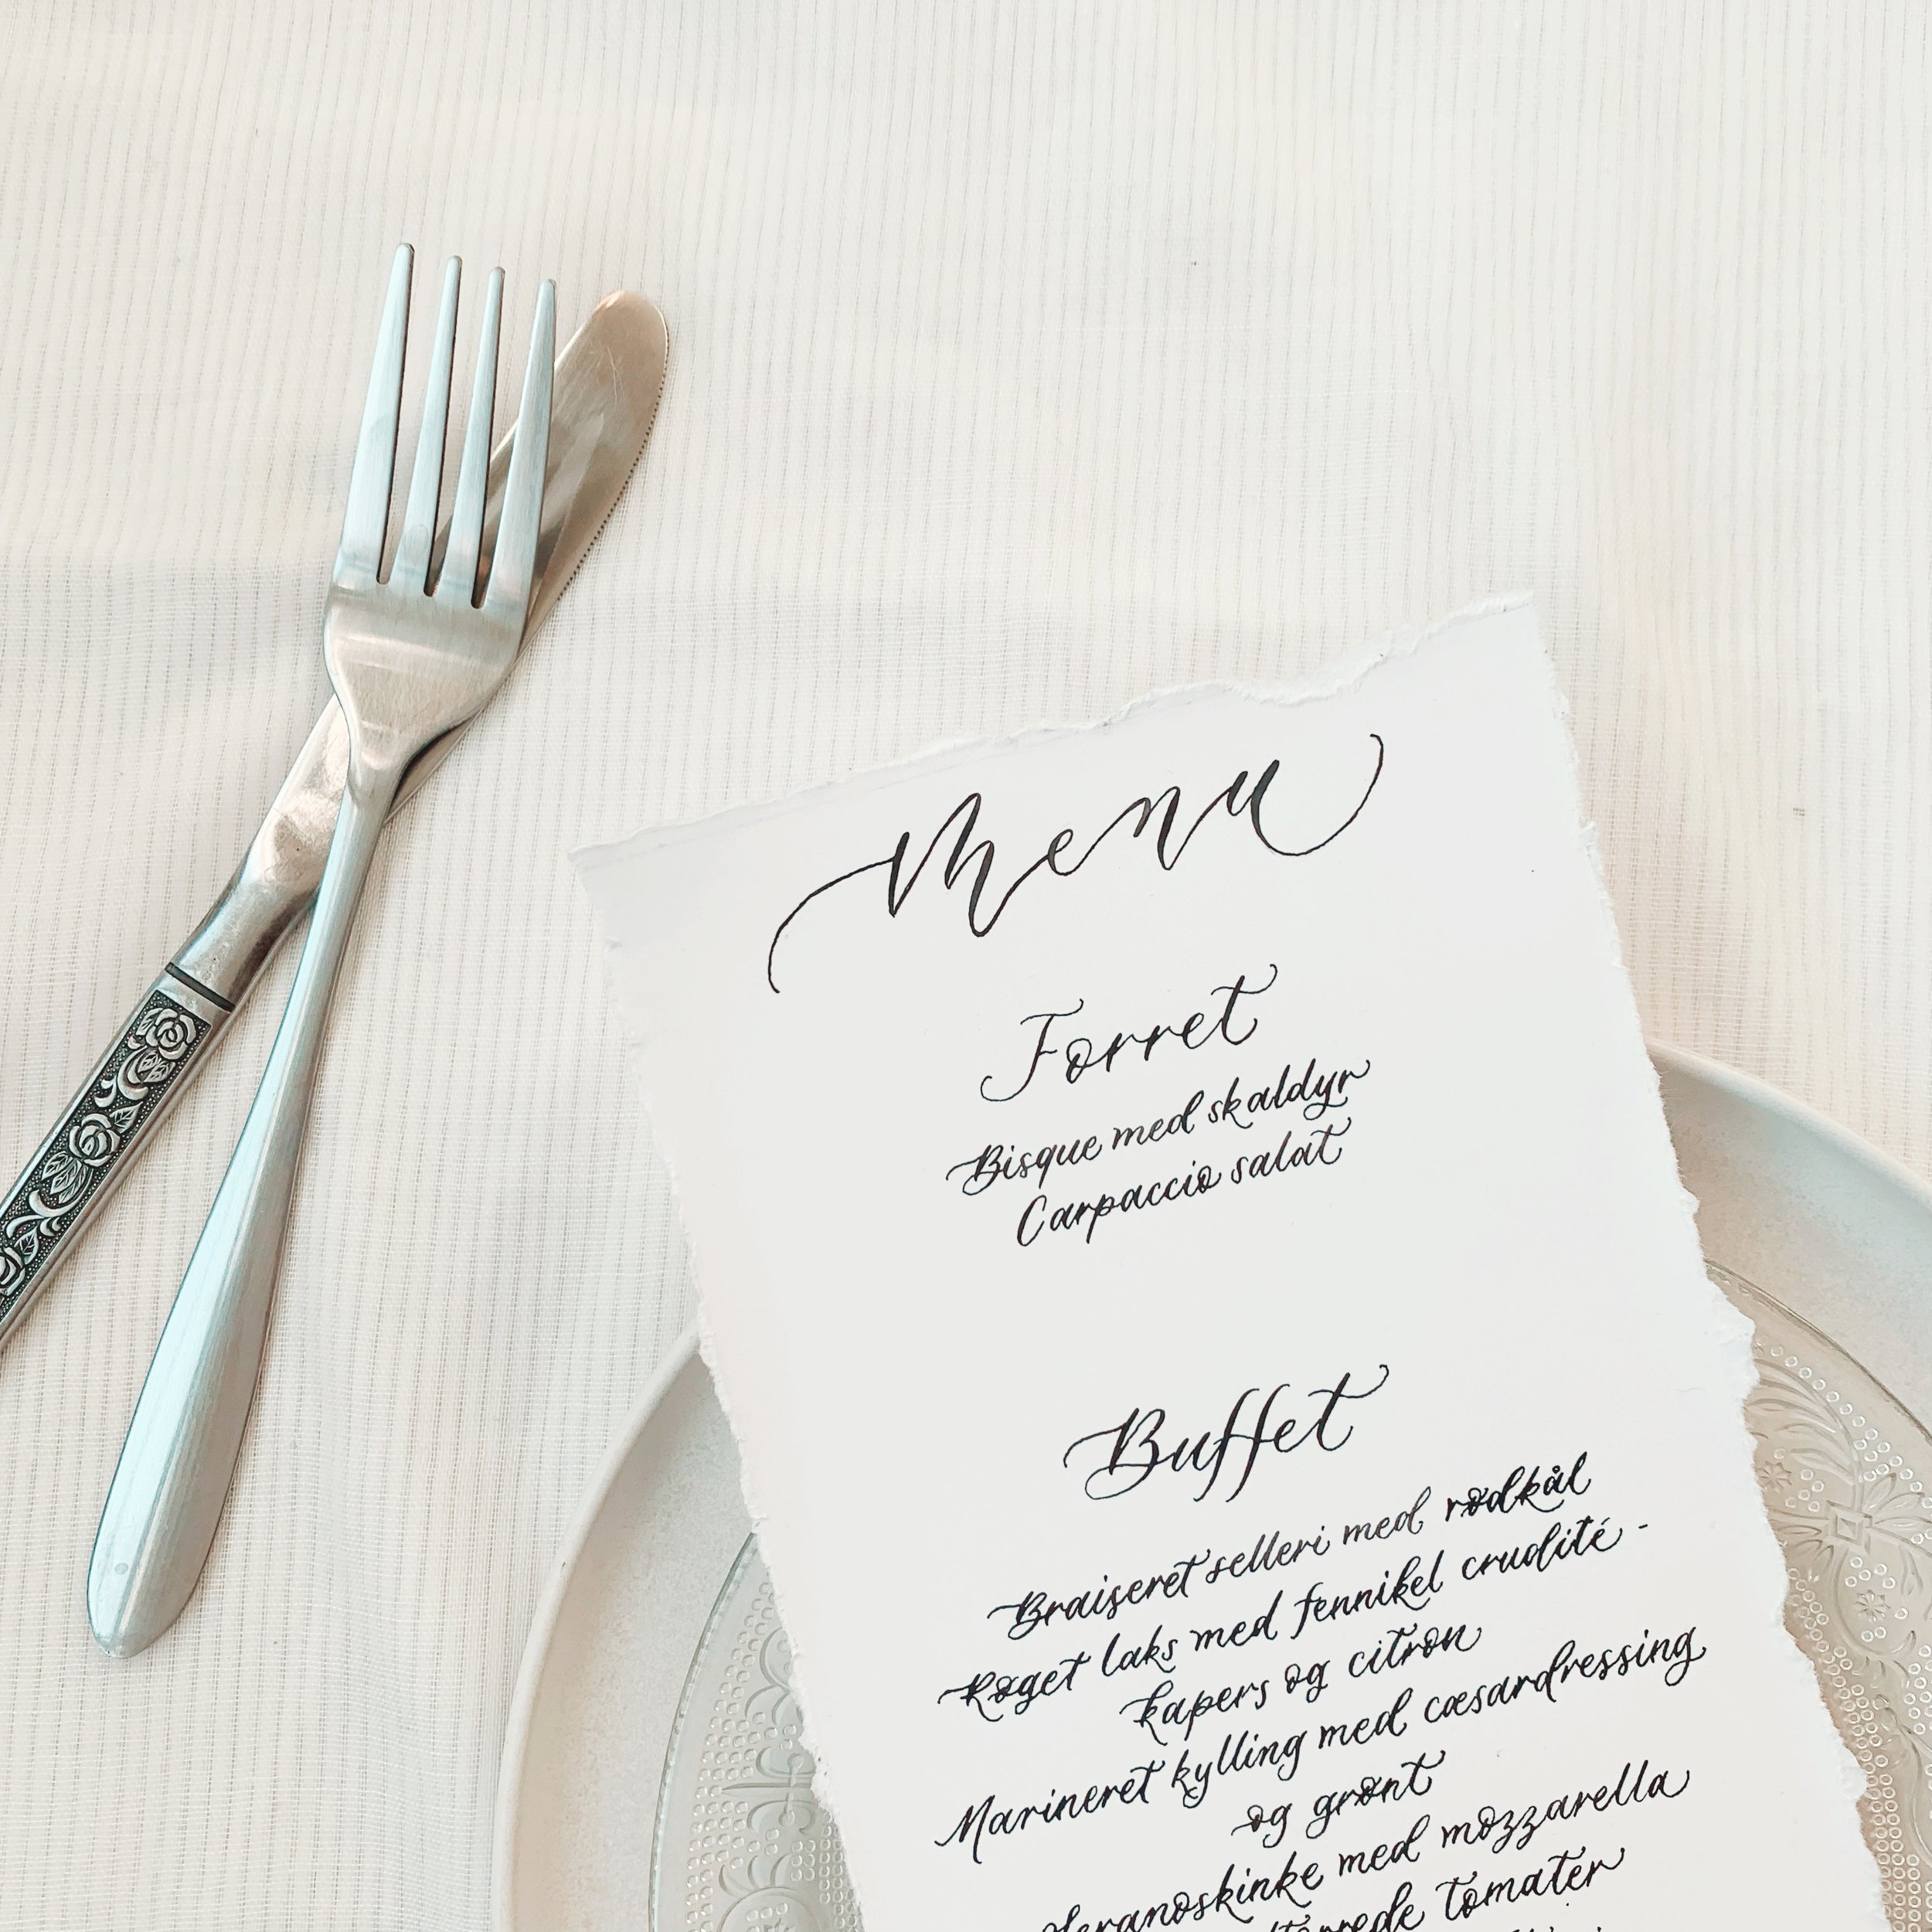 Menu
Forret
Bisque med skaldyr
Carpaccio salat
Buffet
Braiseret selleri med rødkål
Røget laks med fennikel crudité -
kapers og citron
Marineret kylling med cæsardressing
og grønt
med mozzarella
tomater